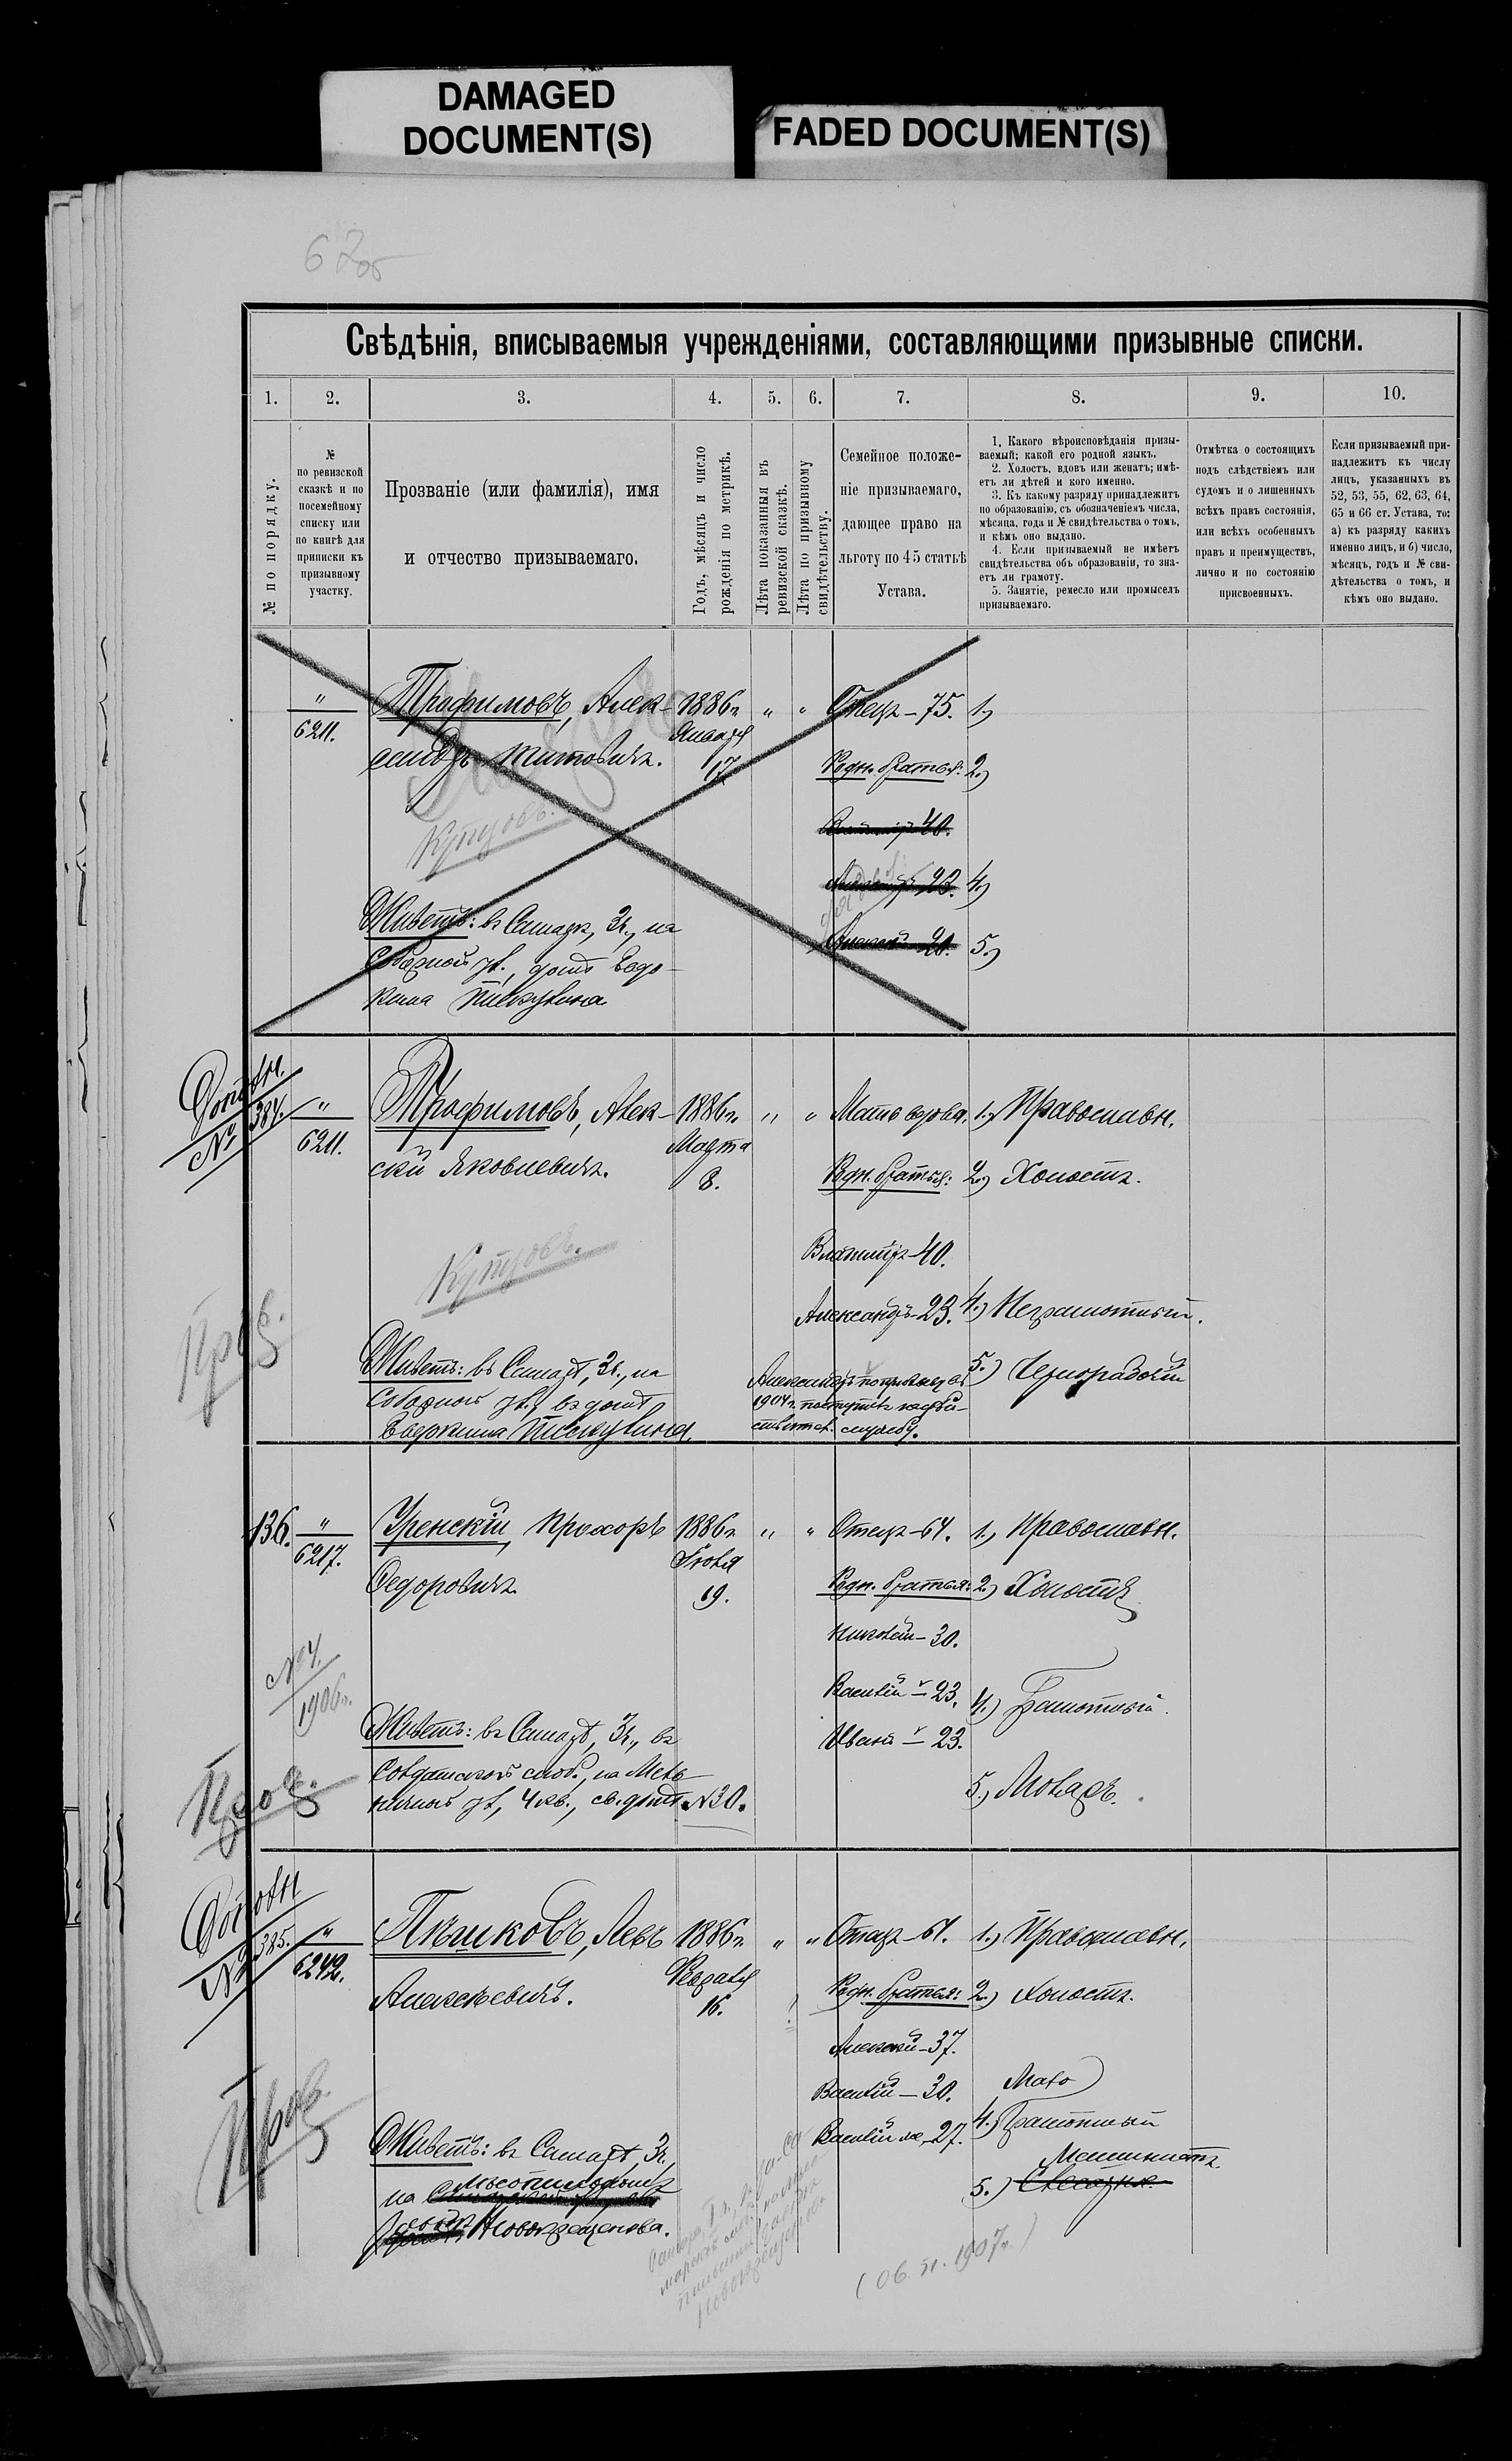 DAMAGED
DOCUMENT(S)
FADED DOCUMENT(S)
67об
Свѣдѣнія, вписываемыя учрежденіями, составляющими призывные списки.
1. 2. 3. 4. 5. 6. 7. 8. 9. 10.
№ по порядку.
№
по ревизской
сказкѣ и по
посемейному
списку или
по книгѣ для
приписки къ
призывному
участку.
Прозваніе (или фамилія), имя
и отчество призываемаго.
Годъ, мѣсяцъ и число
рожденія по метрикѣ.
Лѣта показанныя въ
ревизской сказкѣ.
Лѣта по призывному
свидѣтельству.
Семейное положе-
ніе призываемаго,
дающее право на
льготу по 45 статьѣ
Устава.
1. Какого вѣроисповѣданія призы-
ваемый; какой его родной языкъ.
2. Холостъ, вдовъ или женатъ; имѣ-
етъ ли дѣтей и кого именно.
3. Къ какому разряду принадлежитъ
по образованію, съ обозначеніемъ числа,
мѣсяца, года и № свидѣтельства о томъ,
и кѣмъ оно выдано.
4. Если призываемый не имѣетъ
свидѣтельства объ образованіи, то зна-
етъ ли грамоту.
5. Занятіе, ремесло или промыселъ
призываемаго.
Отмѣтка о состоящихъ
подъ слѣдствіемъ или
судомъ и о лишенныхъ
всѣхъ правъ состоянія,
или всѣхъ особенныхъ
правъ и преимуществъ,
лично и по состоянію
присвоенныхъ.
Если призываемый при-
надлежитъ къ числу
лицъ, указанныхъ въ
52, 53, 55, 62, 63, 64,
65 и 66 ст. Устава, то:
а) къ разряду какихъ
именно лицъ, и б) число,
мѣсяцъ, годъ и № сви-
дѣтельства о томъ, и
кѣмъ оно выдано.
"
6211.
Трофимовъ, Алек-
сандръ Титовичъ.
Кутузовъ.
1886г.
Января
17
" "
Отецъ-75.
Родн. братья:
40.
23.
Алексѣй 20.
1.)
2.)
4.)
5.)
Живетъ: въ Самарѣ, 3ч., на
Соборной ул., домъ
Дополн.
№ 384.
"
6211.
Трофимовъ, Алек-
сѣй Яковлевичъ.
1886г.
Марта
8.
" "
Мать вдова.
Родн. братья:
Владиміръ-40.
Александръ-23.
Александръ по призыву въ
1904г. поступилъ на дѣй-
ствител. службу.
1.) Православн.
2.) Холостъ.
4.) Неграмотный.
5.) Чернорабочій
Пров.
Живетъ: въ Самарѣ, 3ч., на
Соборной ул., въ домѣ
136.
"
6217.
Уренскій, Прохоръ
Федоровичъ.
1886г.
Іюля
19.
" "
Отецъ-64.
Родн. братья:
Николай-30.
Василій-23.
Иванъ-23.
1.) Православн.
2.) Холостъ
4.) Грамотный.
5.) Маляръ.
№4.
1906г.
Пров.
Живетъ: въ Самарѣ, 3ч., въ
Солдатской слоб., на Мель-
ничной ул., 4 кв., св. домъ №30.
Дополн
№ 385.
"
6242.
Пѣшковъ, Левъ
Алексѣевичъ.
1886г.
Февраля
16.
" "
Отецъ-61.
Родн. братья:
Алексѣй-37.
Василій-30.
Василій же-27.
1.) Православн.
2.) Холостъ.
Мало
4.) Грамотный
Машинистъ
5.) Слесарь.
Пров.
Живетъ: въ Самарѣ, 3ч.,
на лѣсопильномъ
заводѣ Новокрещенова.
(06. п. 1907г.)